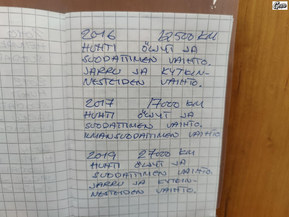 2016 12500 KM
HUHTI ÖLJYT JA
SUODATTIMEN VAIHTO.
JARRU JA KYTKIN-
NESTEIDEN VAIHTO.
2017 17000 KM
HUHTI ÖLJYT JA
SUODATTIMEN VAIHTO.
ILMANSUODATTIMEN VAIHTO
2019 27000 KM
HUHTI ÖLJYT JA
SUODATTIMEN VAIHTO.
JARRU JA KYTKIN-
NESTEIDEN VAIHTO.